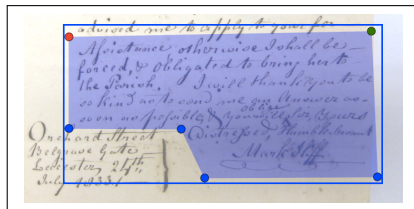 advised me to apply to you for
Assistance otherwise I shall be
forced, & Obligated to bring her to
the Parish. I will thank you to be
so kind as to send me an Answer as
soon as possible & you will
oblige
your
Distressed Humble Servant
Mark Iliff
Orchard Street
Belgrave Gate
Leicester, 24th
July 1833